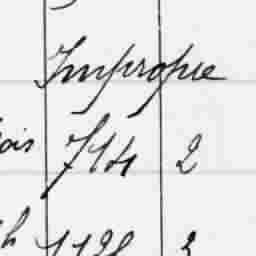 Impropre
ois 714 2
h 1128 3